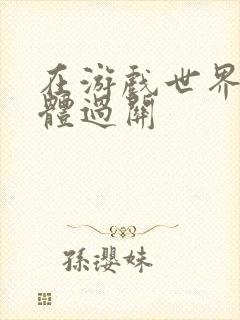 在游戏世界
體過關
孫瓔妹